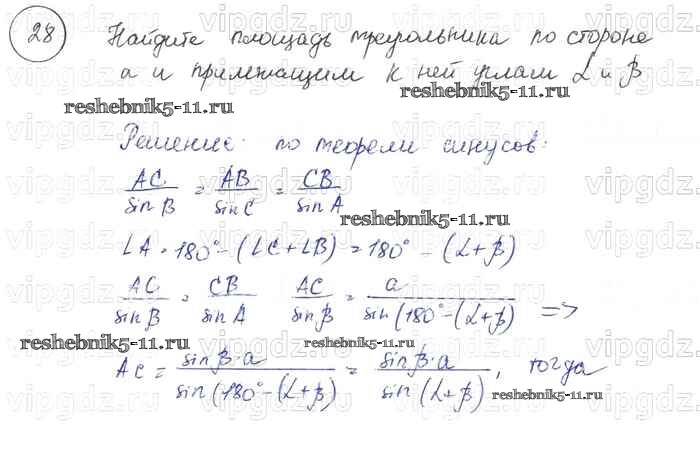 28 Найдите площадь треугольника по стороне
a и прилежащим к ней углам α и β
reshebnik5-11.ru reshebnik5-11.ru
Решение: по теореме синусов:
AC/sin B = AB/sin C = CB/sin A
reshebnik5-11.ru
∠A = 180° - (∠C+∠B) = 180° - (α+β)
AC/sin β = CB/sin A AC/sin β = a/sin(180° - (α+β) =>
reshebnik5-11.ru reshebnik5-11.ru
AC = sin β · a/sin(180° - (α+β) = sin β · a/sin(α+β), тогда
reshebnik5-11.ru